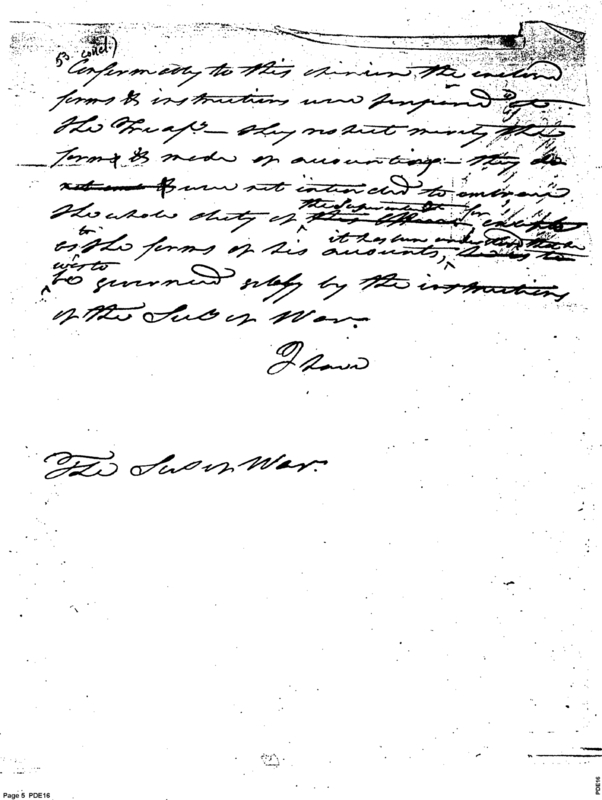 53 concl.)
Conformably to this opinion the enclosed
forms & instructions were prepared at
the Treasy— they respect merely the
form & mode of accounting— they do
not and & were not intended to embrace
the Superintendt for
the whole duty of this Officer, except
to it has been understood that he
as the forms of his accounts, he is to
was to
be governed solely by the instructions
of the Sec of War.
I have
The Sec of War.
Page 5 PDE16
PDE16